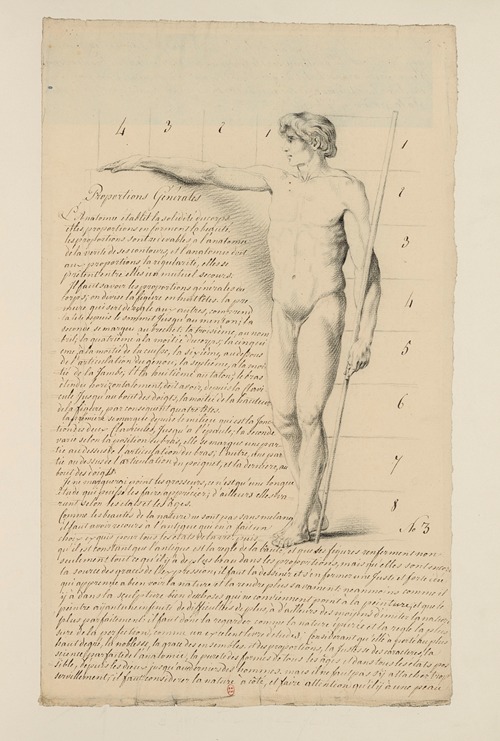 4 3 2 1
1
2
3
4
5
6
7
8
No 3
Proportions Générales
L'Anatomie établit la solidité du corps
et les proportions en forment la beauté,
les proportions sont recevables à l'anatomie
de la vérité de ses contours, et l'anatomie doit
aux proportions la régularité, elles se
prêtent entre elles un mutuel secours.
Il faut savoir les proportions générales du
corps, on divise la figure en huit têtes. la pre
mière qui sert de règle aux autres, comprend
la tête depuis le sommet jusqu'au menton; la
seconde se marque au brechet; la troisième, au nom
bril; la quatrième à la moitié du corps; la cinquie
me, à la moitié de la cuisse, la sixième, au dessous
de l'articulation du genou; la septième, à la moi
tié de la jambe; et la huitième au talon; le bras
étendu horizontalement, doit avoir, depuis la clavi
cule jusqu'au bout des doigts, la moitié de la hauteur
de la figure, par conséquent quatre têtes.
la première se marque depuis le milieu qui est la jonc
tion des deux clavicules jusqu'à l'épaule; la seconde
varie selon la position du bras, elle se marque une par
tie au dessus de l'articulation du bras; l'autre, une par
tie au dessus de l'articulation du poignet, et la dernière, au
bout des doigts.
Je ne marquerai point les grosseurs, ce n'est qu'une longue
étude qui puisse les faire apprécier; d'ailleurs elles va
rient selon les états et les âges.
Comme les beautés de la nature ne sont pas sans mélang
il faut avoir recours à l'antique qui en a fait un
choix exquis pour tous les états de la vie; puis
qu'il est constant que l'antique est la règle de la beauté, et que ses figures renferment non
seulement tout ce qu'il y a de plus beau dans les proportions, mais qu'elles sont encore
la source des grâces de l'expression, il faut la dessiner et s'en former une juste et forte idée
qui apprenne à bien voir la nature et la rendre plus savamment; néanmoins comme il
y a dans la sculpture bien des choses qui ne conviennent point à la peinture, et que le
peintre a d'ailleurs
plus parfaitement; il faut donc la regarder comme la nature épurée et la règle la plus
sûre de la perfection, comme un excellent livre
haut degré, la noblesse, la grâce des ensembles et des proportions, la justesse des caractères, la
science parfaite de l'anatomie, la pureté des formes de tous les âges et dans tous les états pos
sible, depuis les dieux jusqu'au dernier des hommes, mais il ne faut pas s'y attacher trop
servilement; il faut considérer la nature à côté, et faire attention qu'il y a une peau